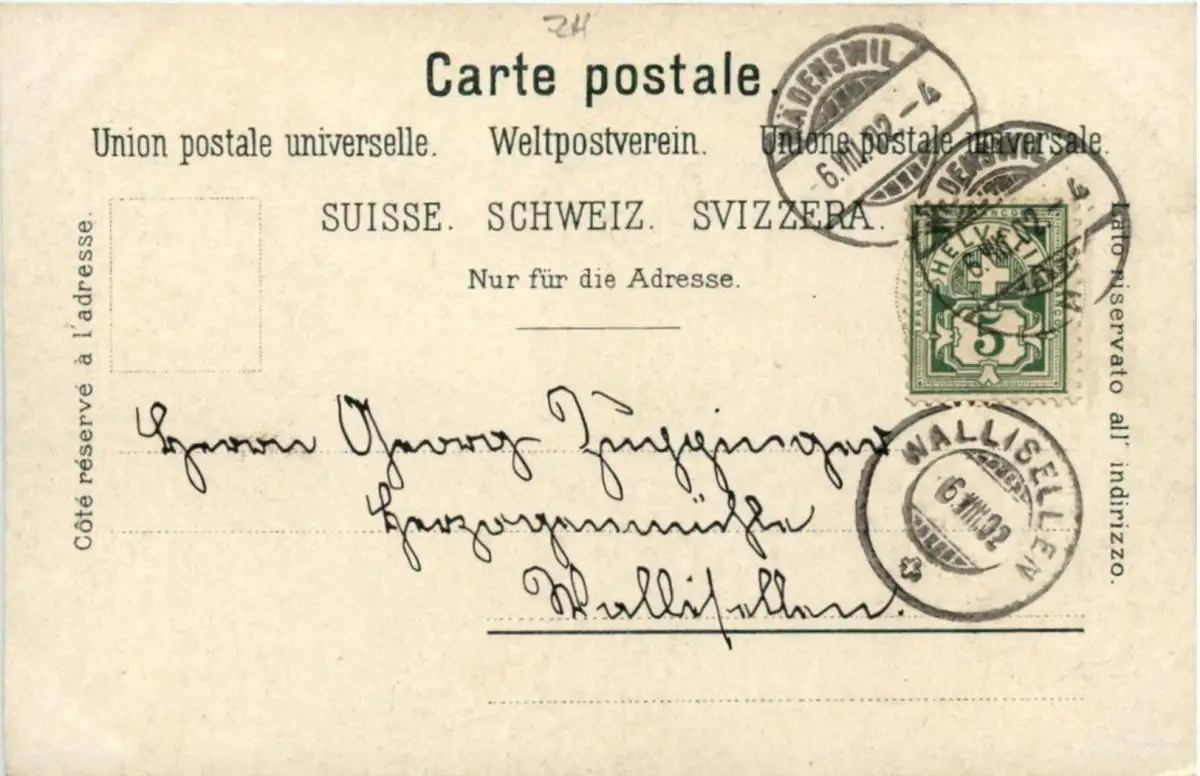 ZH
Carte postale.
Union postale universelle. Weltpostverein. Unione postale universale.
SUISSE. SCHWEIZ. SVIZZERA.
Nur für die Adresse.
Côté réservé à l'adresse.
Lato riservato all' indirizzo.
WÄDENSWIL
6.VIII.02–4
WÄDENSWIL
6.VIII.02–4
HELVETIA
FRANCO
FRANCO
FRANCO
5
WALLISELLEN
6.VIII.02
Herrn Georg Zuppinger
Herzogenmühle
Wallisellen.